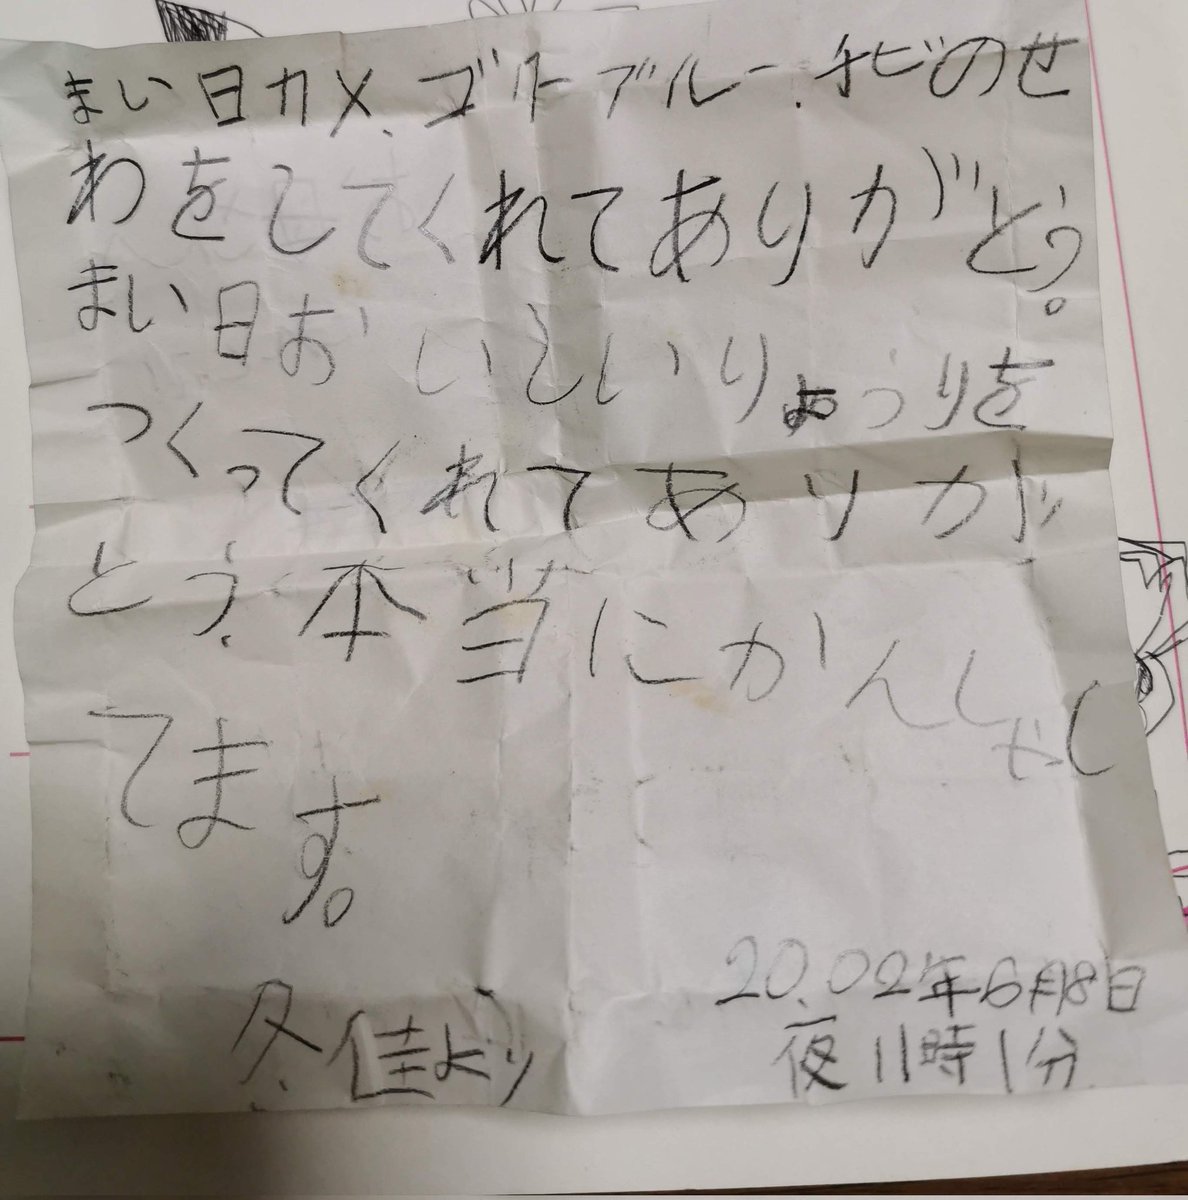 まい日カメ、ゴートブルー、チビのせ
わをしてくれてありがとう。
まい日おいしいりょうりを
つくってくれてありが
とう、本当にかんしゃし
てます。
20.02年6月8日
夜11時1分
冬佳より